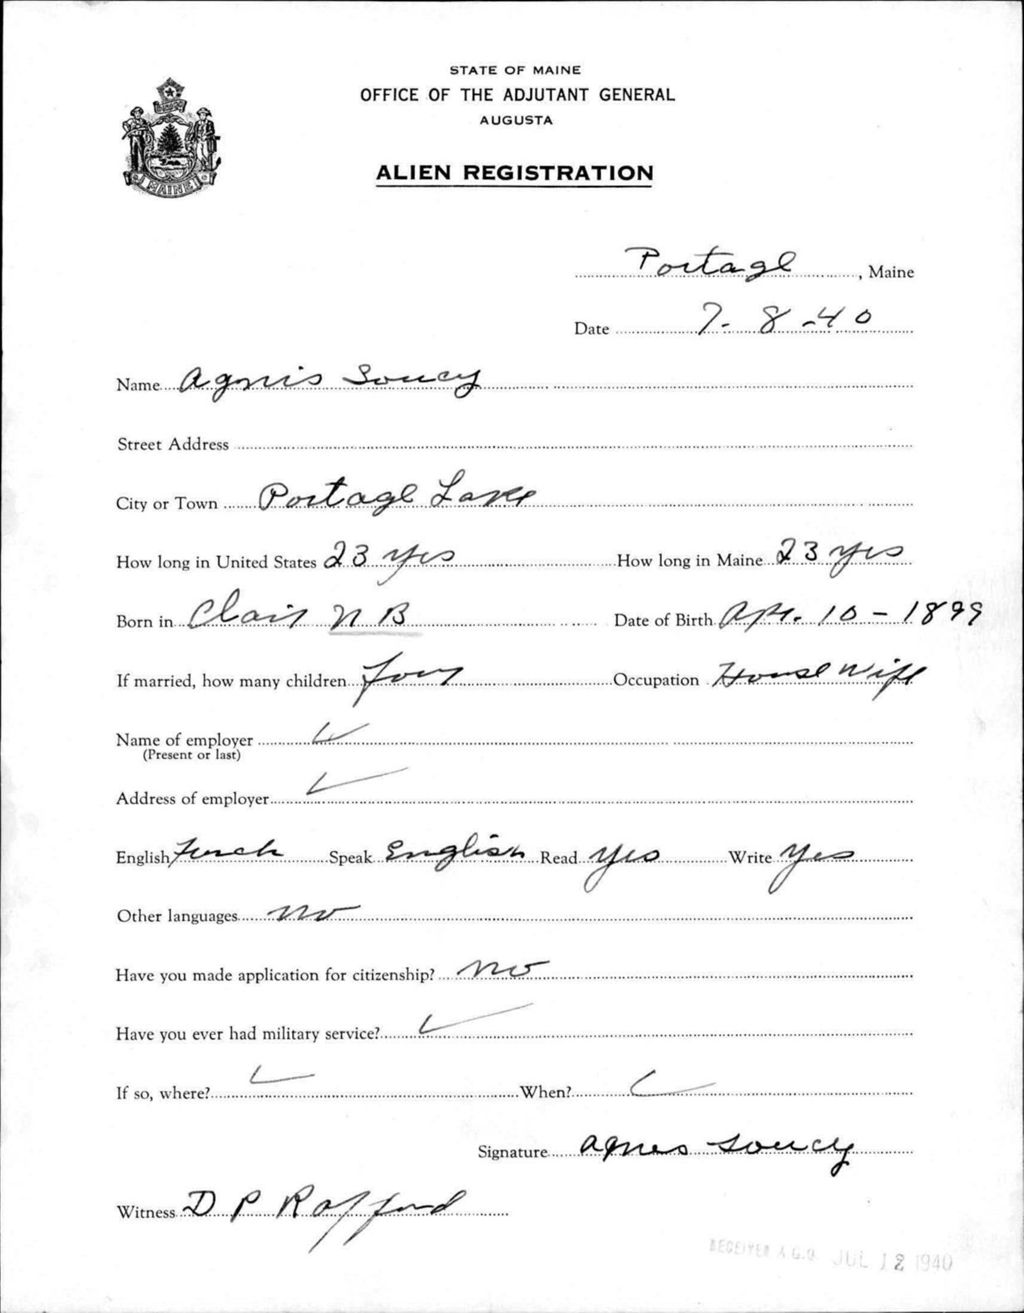 STATE OF MAINE
OFFICE OF THE ADJUTANT GENERAL
AUGUSTA
ALIEN REGISTRATION
MAINE
Portage, Maine
Date 7-8-40
Name Agnis Soucy
Street Address
City or Town Portage Lake
How long in United States 23 yrs How long in Maine 23 yrs
Born in Clair N B Date of Birth Apr. 10-1899
If married, how many children four Occupation House Wife
Name of employer
(Present or last)
Address of employer
English French Speak English Read Yes Write Yes
Other languages no
Have you made application for citizenship? no
Have you ever had military service?
If so, where? When?
Signature Agnes Soucy
Witness D P Rafford
RECEIVED A.G.O. JUL 12 1940